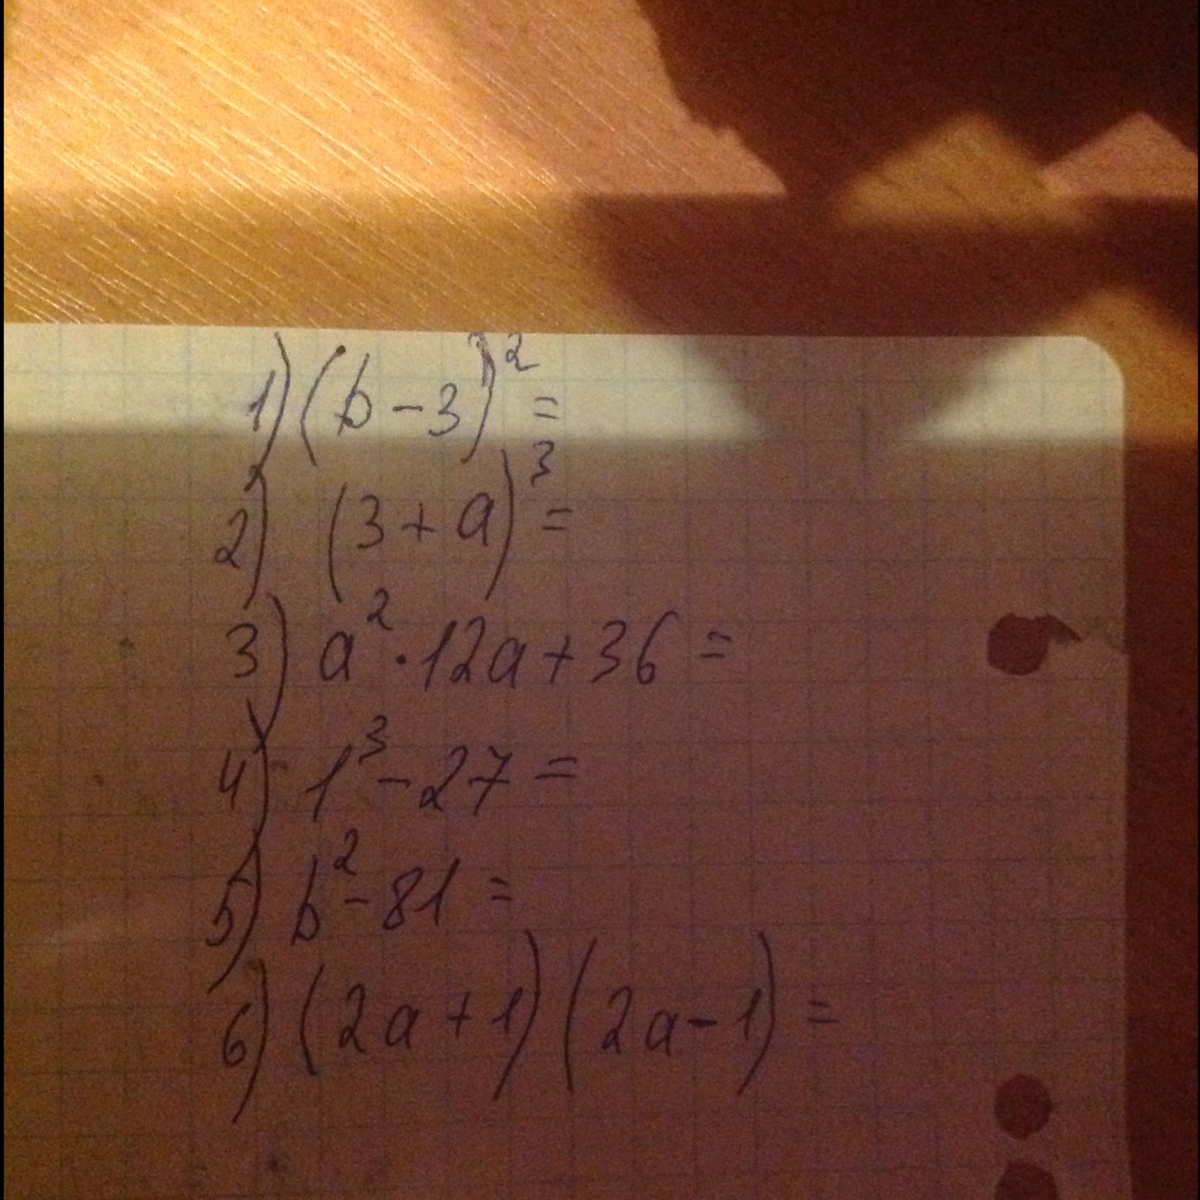 1) (b-3)² =
2) (3+a)³ =
3) a²·12a+36 =
4) 1³-27 =
5) b²-81 =
6) (2a+1)(2a-1) =